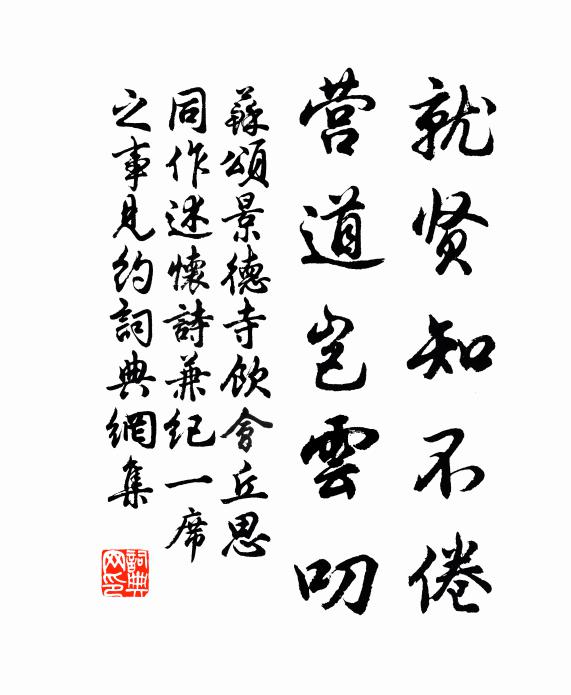 就贤知不倦
营道岂雲叨
蘇頌景德寺飲會丘思
同作述懷詩兼紀一席
之事見約詞典網集
詞典
网印